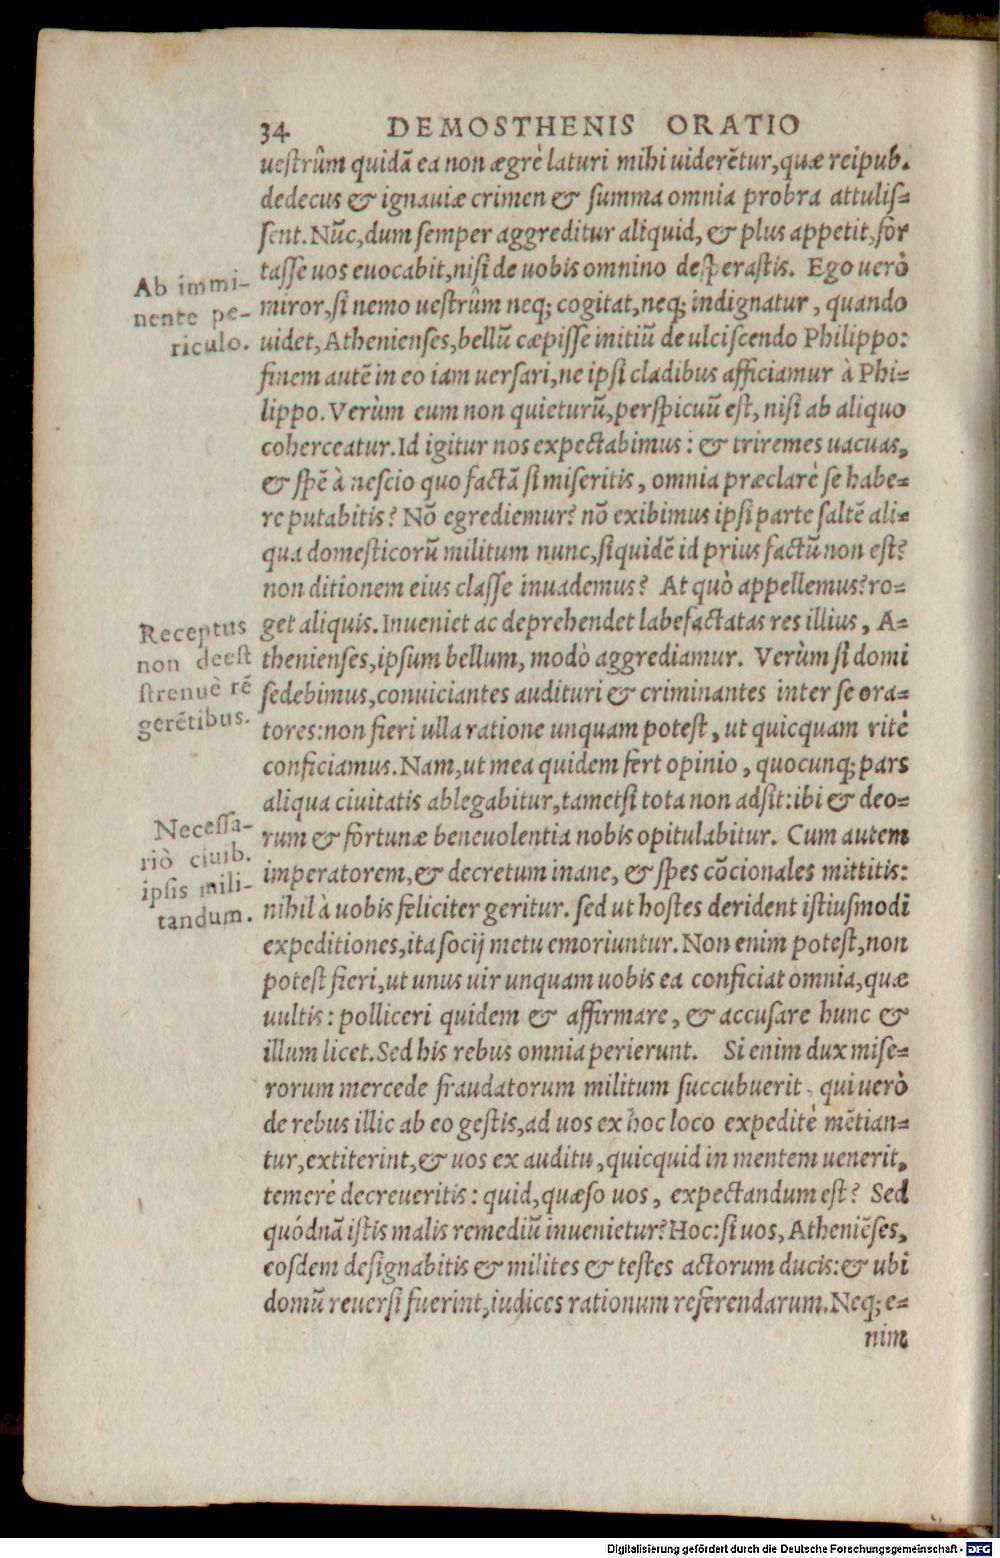 34 DEMOSTHENIS ORATIO
uestrûm quidã ea non ægrè laturi mihi uiderẽtur, quæ reipub.
dedecus & ignauiæ crimen & summa omnia probra attulis-
sent. Nũc, dum semper aggreditur aliquid, & plus appetit, for
tasse uos euocabit, nisi de uobis omnino desperastis. Ego uerò
Ab immi-
nente pe-
riculo.
miror, si nemo uestrûm neq; cogitat, neq; indignatur, quando
uidet, Athenienses, bellũ cæpisse initiũ de ulciscendo Philippo:
finem autẽ in eo iam uersari, ne ipsi cladibus afficiamur à Phi-
lippo. Verùm eum non quieturũ, perspicuũ est, nisi ab aliquo
coherceatur. Id igitur nos expectabimus: & triremes uacuas,
& spẽ à nescio quo factã si miseritis, omnia præclarè se habe-
re putabitis? Nõ egrediemur? nõ exibimus ipsi parte saltẽ ali-
qua domesticorũ militum nunc, siquidẽ id prius factũ non est?
non ditionem eius classe inuademus? At quò appellemus? ro-
Receptus
non deest
strenuè rẽ
gerẽtibus.
get aliquis. Inueniet ac deprehendet labefactatas res illius, A-
thenienses, ipsum bellum, modò aggrediamur. Verùm si domi
sedebimus, conuiciantes audituri & criminantes inter se ora-
tores: non fieri ulla ratione unquam potest, ut quicquam ritè
conficiamus. Nam, ut mea quidem fert opinio, quocunq; pars
aliqua ciuitatis ablegabitur, tametsi tota non adsit: ibi & deo-
Necessa-
riò ciuib.
ipsis mili-
tandum.
rum & fortunæ beneuolentia nobis opitulabitur. Cum autem
imperatorem, & decretum inane, & spes cõcionales mittitis:
nihil à uobis feliciter geritur. sed ut hostes derident istiusmodi
expeditiones, ita socij metu emoriuntur. Non enim potest, non
potest fieri, ut unus uir unquam uobis ea conficiat omnia, quæ
uultis: polliceri quidem & affirmare, & accusare hunc &
illum licet. Sed his rebus omnia perierunt. Si enim dux mise-
rorum mercede fraudatorum militum succubuerit, qui uerò
de rebus illic ab eo gestis, ad uos ex hoc loco expeditè mẽtian-
tur, extiterint, & uos ex auditu, quicquid in mentem uenerit,
temerè decreueritis: quid, quæso uos, expectandum est? Sed
quódnã istis malis remediũ inuenietur? Hoc: si uos, Atheniẽses,
eosdem designabitis & milites & testes actorum ducis: & ubi
domũ reuersi fuerint, iudices rationum referendarum. Neq; e-
nim
Digitalisierung gefördert durch die Deutsche Forschungsgemeinschaft - DFG